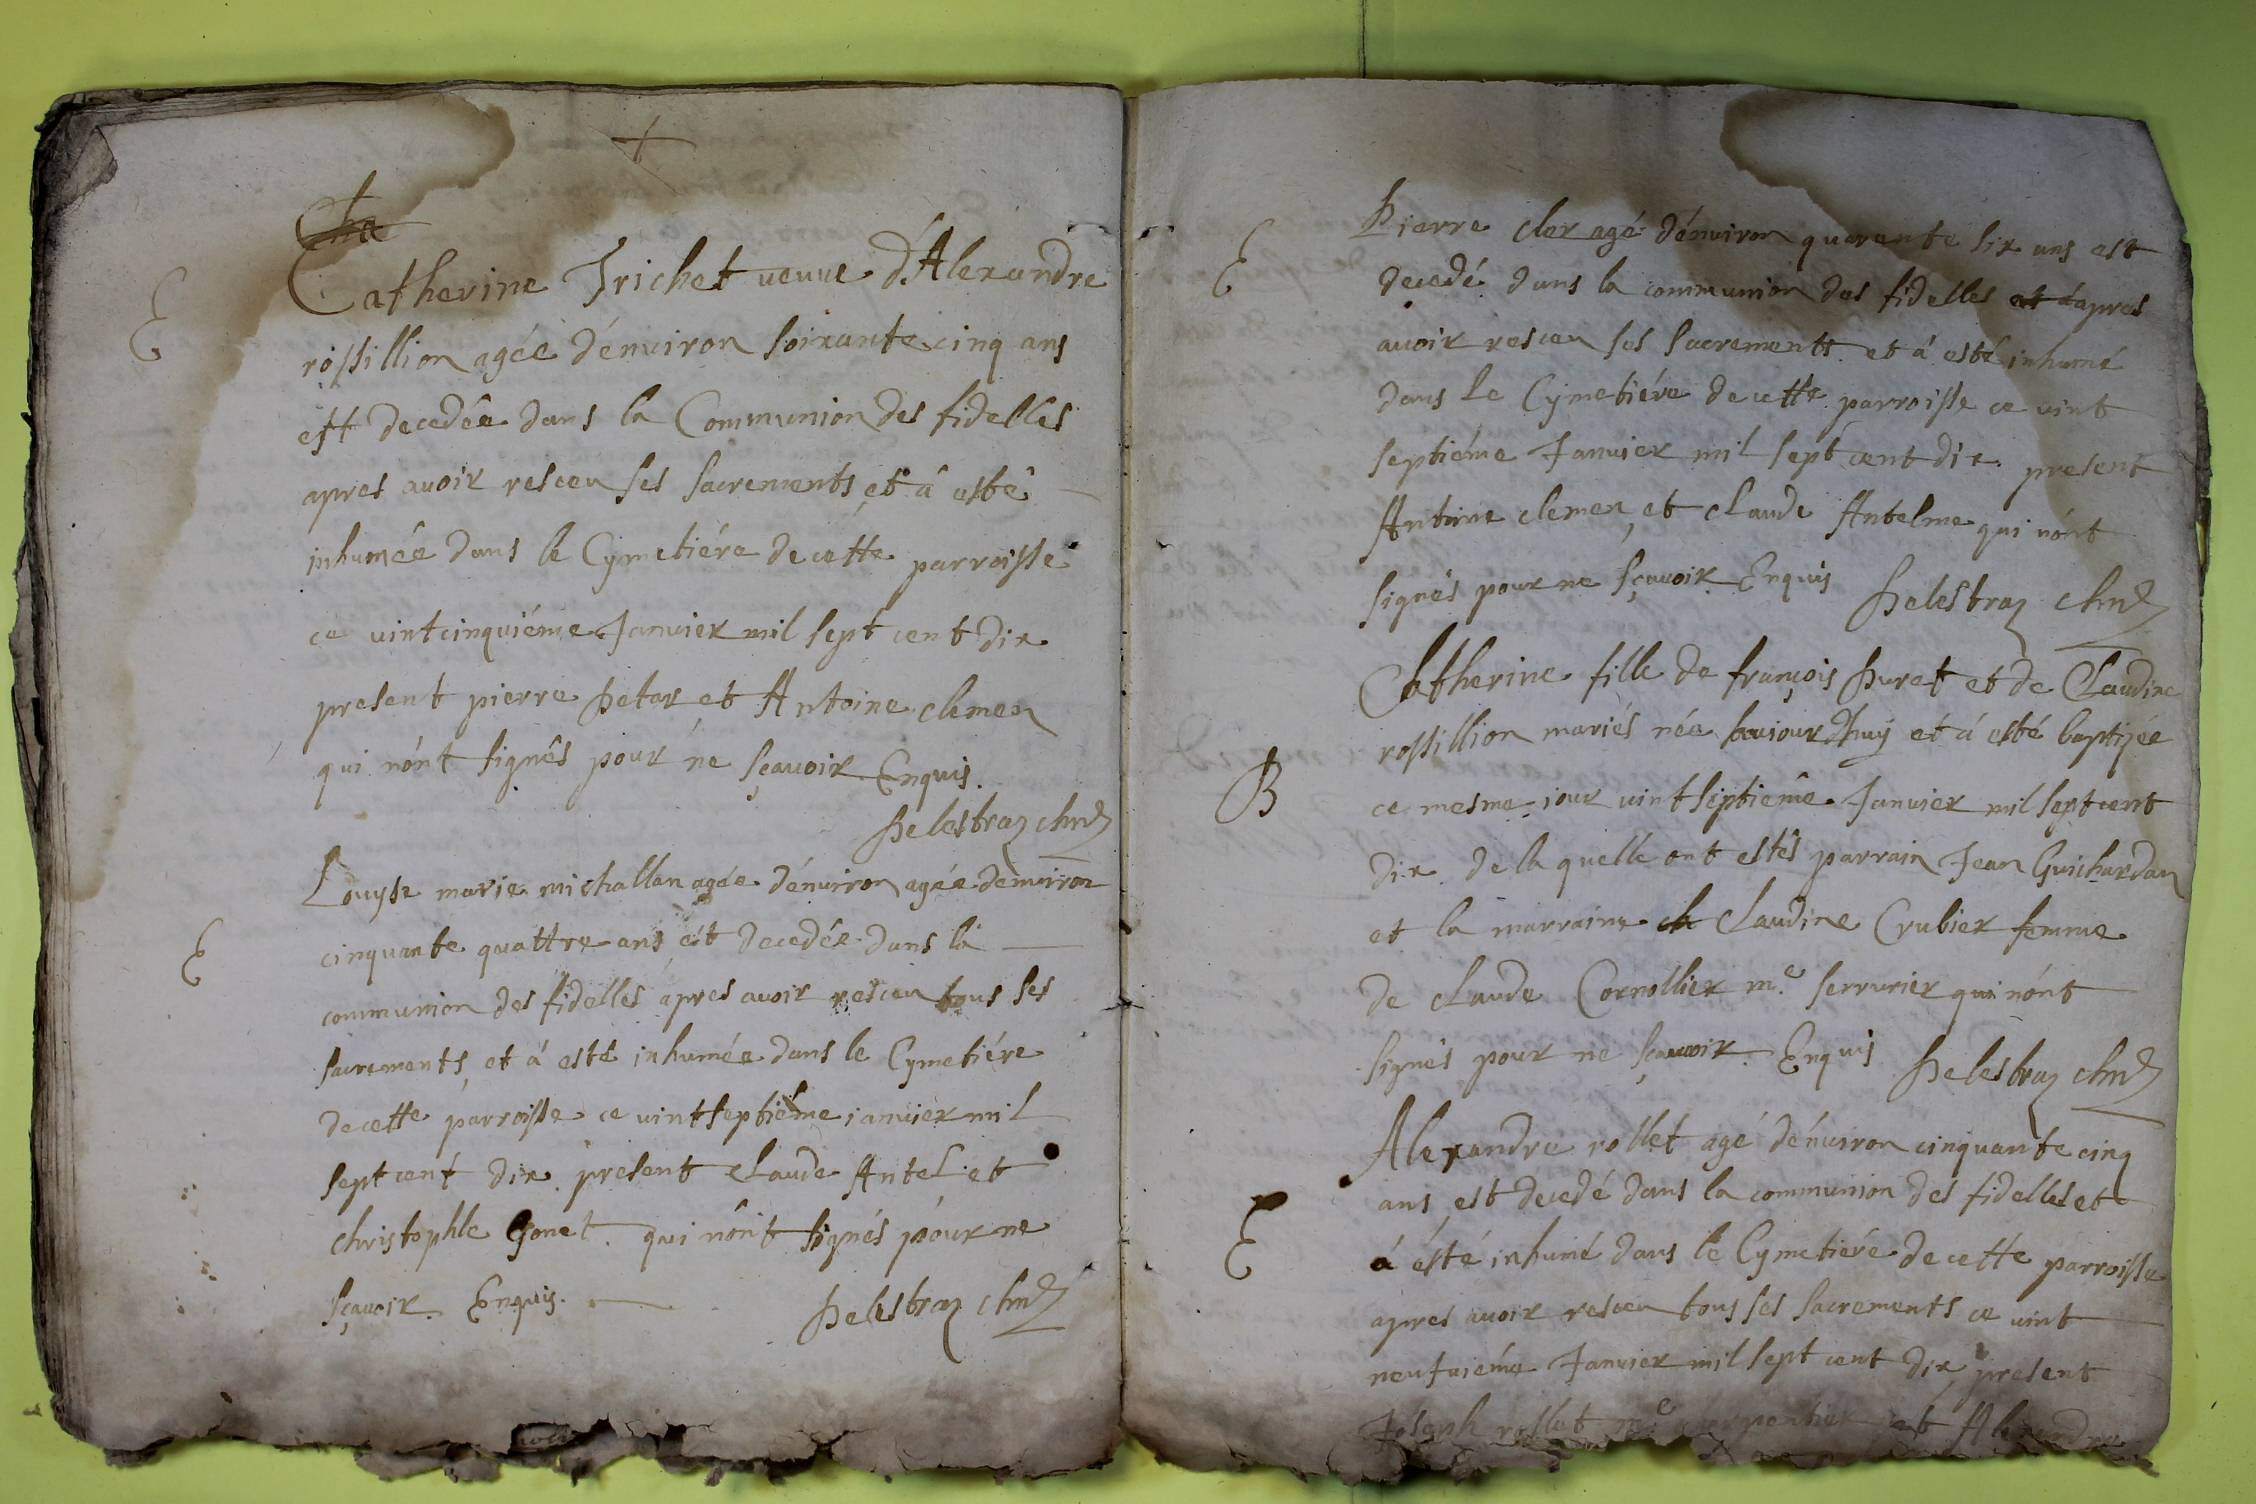 Cha
Catherine Trichet veuve d'Alexandre
E
rossillion agée d'énviron soixante cinq ans
est decedée dans la Communion des fidelles
apres avoir resceu ses sacrements et â esté
inhumée dans le Cymetiére de cette parroisse
ce vintcinquiéme Janvier mil sept cent dix
present pierre petar et Antoine clemen
qui nónt signés pour ne sçavoir Enquis.
Delestraz
Louyse marie michallan agée d'énviron agée denviron
E
cinquante quattre ans est decedée dans la
communion des fidelles apres avoir resceu tous ses
sacrements et á esté inhumée dans le Cymetiére
de cette parroisse ce vintseptiéme janvier mil
sept cent dix present claude Antel et
christophle Gonet qui nónt signés pour ne
sçavoir Enquis.
Delestraz
Pierre cler agé d'énviron quarente six ans est
E
decedé dans la communion des fidelles et apres
avoir resceu ses sacrements et á esté inhumé
dans le Cymetiére de cette parroisse ce vint
septiéme Janvier mil sept cent dix present
Antoine clemen et claude Antelme qui nónt
signés pour ne sçavoir Enquis
Delestraz
Catherine fille de françois Puret et de Claudine
rossillion mariés née aujourdhuy et á esté baptizée
B
ce mesme jour vintseptiéme Janvier mil sept cent
dix de la quelle ont estés parrain Jean Guichardan
et la marraine Claudine Crubier femme
de claude Cornollier m.e serrurier qui nónt
signés pour ne sçavoir Enquis
Delestraz
Alexandre rollet agé d'énviron cinquante cinq
ans est decedé dans la communion des fidelles et
E
á ésté inhumé dans le Cymetiére de cette parroisse
apres avoir resceu tous ses sacrements ce vint
neufviéme Janvier mil sept cent dix present
Joseph rollet m.e charpentier et Alexandre